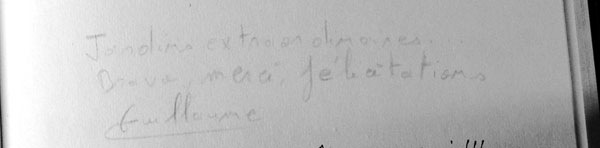 Jardins extraordinaires...
Bravo, merci, félicitations
Guillaume